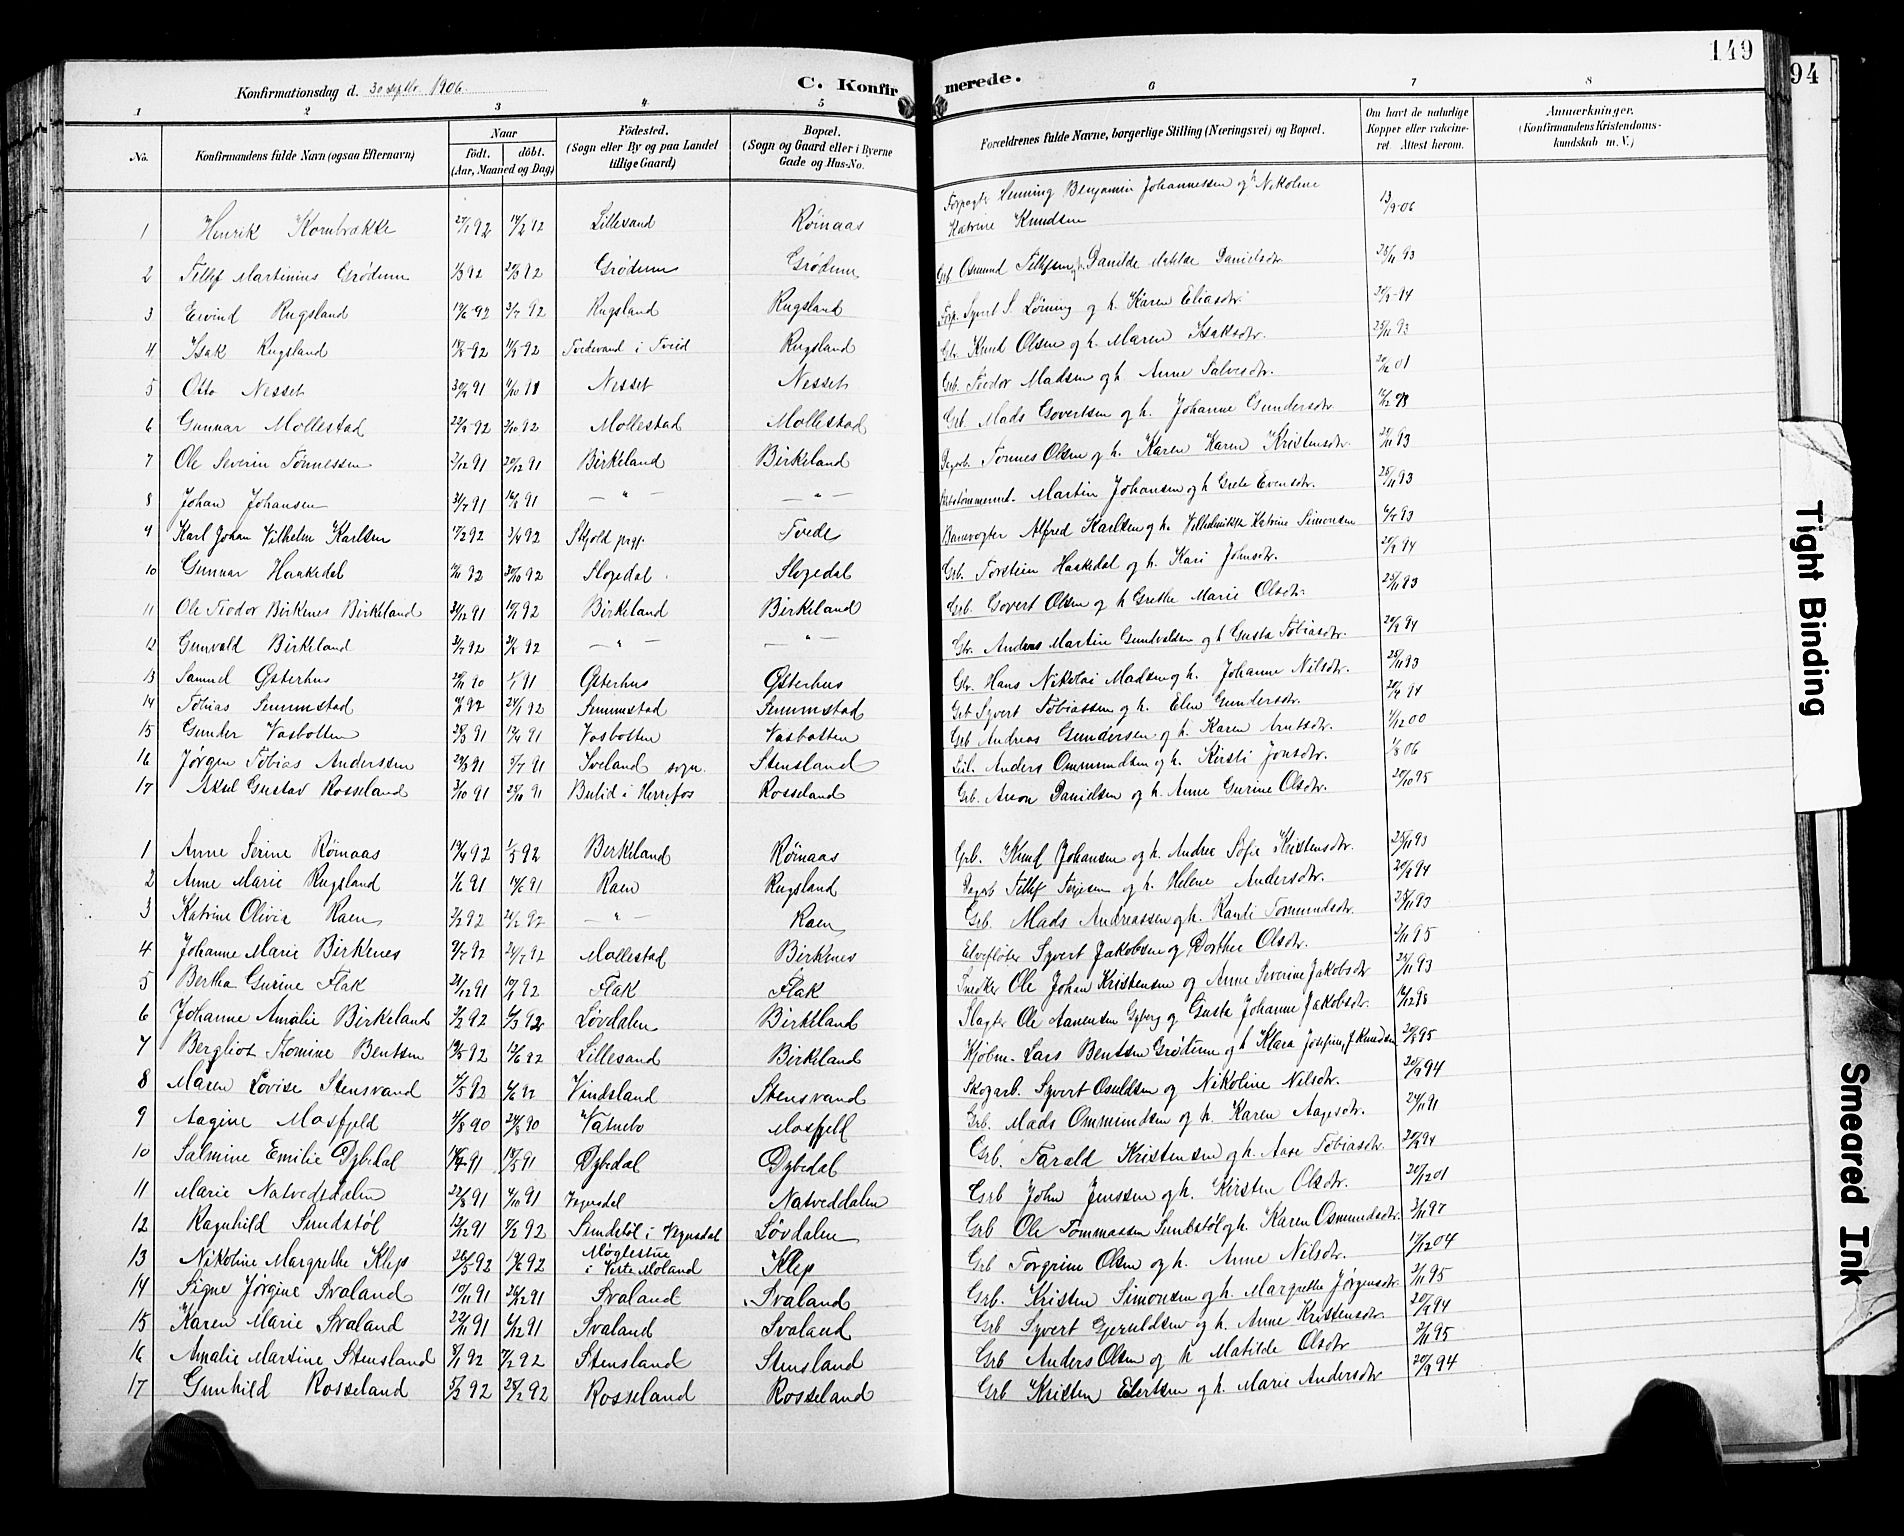 149
94
Konfirmationsdag d. 30 septbr. 1906.
C. Konfirmerede.
1 2 3 4 5 6 7 8
No.
Konfirmandens fulde Navn (ogsaa Efternavn)
Naar
født. døbt.
(Aar, Maaned og Dag)
Fødested.
(Sogn eller By og paa Landet
tillige Gaard)
Bopæl.
(Sogn og Gaard eller i Byerne
Gade og Hus-No.
Forældrenes fulde Navne, borgerlige Stilling (Næringsvei) og Bopæl.
Om havt de naturlige
Kopper eller vakcine-
ret. Attest herom.
Anmærkninger.
(Konfirmandens Kristendoms-
kundskab m. V.)
Forpagter Henning Benjamin Johannessen og h. Nikoline
1 Henrik Kornbrække 27/1 92 14/2 92 Lillesand Römaas Katrine Knudsen 13/9-06
2 Tellef Martinius Grödum 1/3 92 27/3 92 Grödum Grödum Grb Osmund Tellefsen og h. Danilde Matilde Danielsdtr 25/11 93
3 Eivind Rugsland 19/6-92 3/7 92 Rugsland Rugsland Forp. Syvert S. Löining og h. Karen Eliasdtr.
4 Isak Rugsland Tvedevand i Tveid Rugsland Gbr. Knud Olsen og h. Maren Isaksdtr. 25/11 93
5 Otto Nesset Nesset Nesset Grb. Teodor Madsen og h. Anne Salvesdtr. 20/12 01
6 Gunnar Mollestad 22/9-92 2/10 92 Mollestad Mollestad Grb. Mads Govertsen og h. Johanne Gundersdtr
7 Ole Severin Tönnessen 2/12 91 20/12 91 Birkeland Birkeland Dagarb. Tönnes Olsen og h. Karen Karen Kristensdtr. 25/11 93
8 Johan Johansen 31/7 91 16/8 91 — " — — " — Martin Johansen og h Grete Evensdtr. 25/11 93
9 Karl Johan Vilhelm Karlsen 17/2 92 3/4 92 Skjold pgj. Tvede Banevogter Alfred Karlsen og h. Vilhelmine Katrine Simonsen 6/7 93
10 Gunnar Haakedal 30/10 92 Slogedal Slogedal Grb. Torstein Haakedal og h. Kari Johnsdtr. 20/9 94
11 Ole Teodor Birkenes Birkeland 31/12 91 17/1 92 Birkeland Birkeland Grb. Govert Olsen og h Grethe Marie Olsdtr. 25/11 93
12 Gunvald Birkeland — " — — " — Gbr. Anders Martin Gundvaldsen og h Gusta Tobiasdtr. 20/9 94
13 Samuel Østerhus 20/11 90 1/1 91 Østerhus Østerhus Gbr. Hans Nikolai Madsen og h. Johanne Nilsdtr. 25/11 93
14 Tobias Senumstad 24/1 92 Senumstad Senumstad Grb Syvert Tobiassen og h. Elen Gundersdtr. 20/9 94
15 Gunder Vasbotten 28/3 91 12/4 91 Vasbotten Vasbotten Grb Andreas Gundersen og h. Karen Arntsdtr. 1/12 00
16 Jørgen Tobias Anderssen 5/7 91 Iveland sogn. Stensland Anders Ommundsen og h. Kirsti Jonsdtr. 1/8 06
17 Aksel Gustav Rosseland 3/10 91 25/10 91 Bulid i Herrefos Rosseland Grb. Aron Danielsen og h. Anne Gurine Olsdtr. 20/10 95
1 Anne Serine Römaas 19/4 92 1/5 92 Berkeland Römaas Grb. Knud Johansen og h. Andrea Sofie Kristensdtr. 25/11 93
2 Anne Marie Rugsland 1/6 91 14/6 91 Raen Rugsland Dagarb Tellef Terjesen og h. Helene Andersdtr. 20/9 94
3 Katrine Olivia Raen 3/2 92 21/2 92 — " — Raen Grb. Mads Andreassen og h. Randi Tomundsdtr. 25/11 93
4 Johanne Marie Birkenes 9/7 92 24/7 92 Mollestad Birkenes Elvefløter Syvert Jakobsen og Dorthee Olsdtr. 2/11 95
5 Bertha Gurine Flak 21/12 91 17/1 92 Flak Flak Snedker Ole Johan Kristensen og Anne Severine Jakobsdtr 25/11 93
6 Johanne Amalie Birkeland 2/2 92 6/3 92 Lövdalen Birkeland Slagter Ole Aanensen Gyberg og Gusta Johanne Jakobsdtr. 16/12 98
7 Bergliot Tomine Bentsen 19/5 92 12/6 92 Lillesand Birkeland Kjöbm. Lars Bentsen Grödum og h Klara Josefine J. Knudsen 20/9 95
8 Maren Lovise Stensvand 4/5 92 6/6 92 Vindsland Stensvand Skogarb. Syvert Osuldsen og Nikoline Nilsdtr. 20/9 94
9 Aagine Mosfjeld 4/8 90 24/8 90 Vatnebo Mosfjeld Grb. Mads Ommundsen og h. Karen Aagesdtr. 24/11 91
10 Salmine Emilie Dybedal 14/4 91 18/5 91 Dybedal Dybedal Grb. Tarald Kristensen og h. Aase Tobiasdtr. 20/9 94
11 Marie Natvedtdalen 22/8 91 4/10 91 Vegusdal Natveddalen Grb John Jenssen og h. Kirsten Olsdtr. 20/12 01
12 Ragnhild Sundstöl 12/12 91 7/2 92 Sundstöl i Vegusdal Lövdalen Grb Ole Tommassen Sundstöl og h. Karen Osmundsdtr 3/11 97
13 Nikoline Margrethe Klep 26/5 92 19/6 92 Møglestue
i Vestre Moland Klep Grb Torgrim Olsen og h. Anne Nilsdtr. 17/12 04
14 Signe Jørgine Svaland 10/11 91 26/12 91 Svaland Svaland Grb. Kristen Simonsen og h. Margrethe Jørgensdtr. 2/11 95
15 Karen Marie Svaland 22/11 91 6/12 91 Svaland Svaland Grb Syvert Gjeruldsen og h. Anne Kristensdtr. 20/9 94
16 Amalie Martine Stensland 9/1 92 7/2 92 Stensland Stensland Grb Anders Olsen og h Matilde Olsdtr 2/11 95
17 Gunhild Rosseland 5/2 92 25/2 92 Rosseland Rosseland Grb Kristen Elertsen og h. Marie Andersdtr 20/9 94
Tight Binding
Smeared Ink